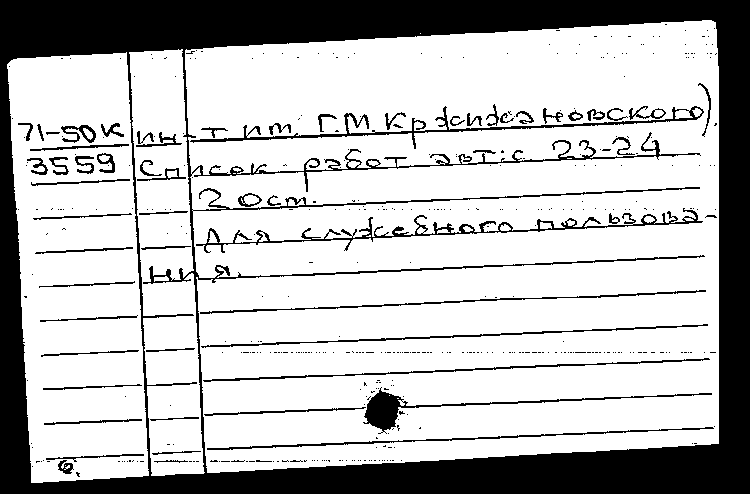 71-50К ин-т им. Г.М. Кржижановского)
3559 Список работ авт: с. 23-24
20 ст.
Для служебного пользова-
ния.
6.